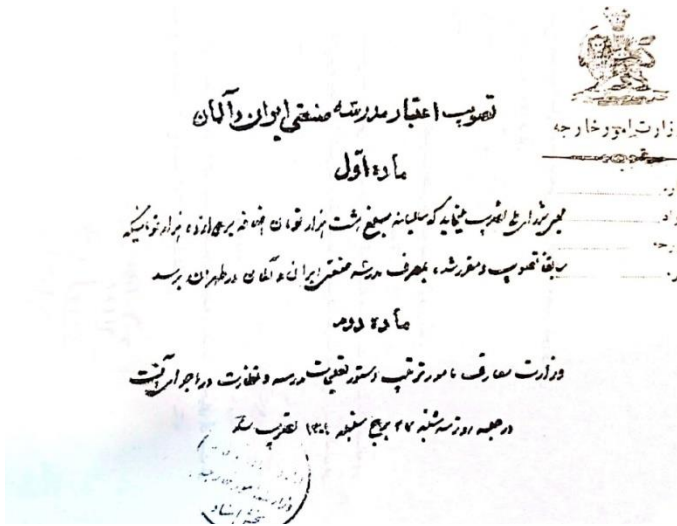 وزارت امور خارجه
تصویب اعتبار مدرسه صنعتی ایران و آلمان
ماده اول
مجلس شورای ملی تصویب مینماید که سالیانه مبلغ هشت هزار تومان اضافه بر دوازده هزار تومانیکه
سابقا تصویب و مقرر شده بمصرف مدرسه صنعتی ایران و آلمان در طهران برسد
ماده دوم
وزارت معارف مامور ترتیب دستور تعلیمات مدرسه و نظارت در اجرای آنست
در جلسه روز سه شنبه ۲۷ برج سنبله ۱۳۰۱ تصویب شد
وزارت امور خارجه
بخش اسناد